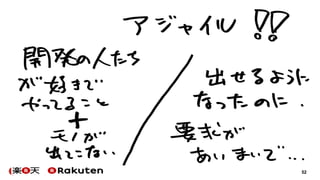 アジャイル!!
開発の人たち
が好きで
やってること
+
モノが
出てこない
出せるように
なったのに.
要求が
あいまいで...
楽天 Rakuten
52